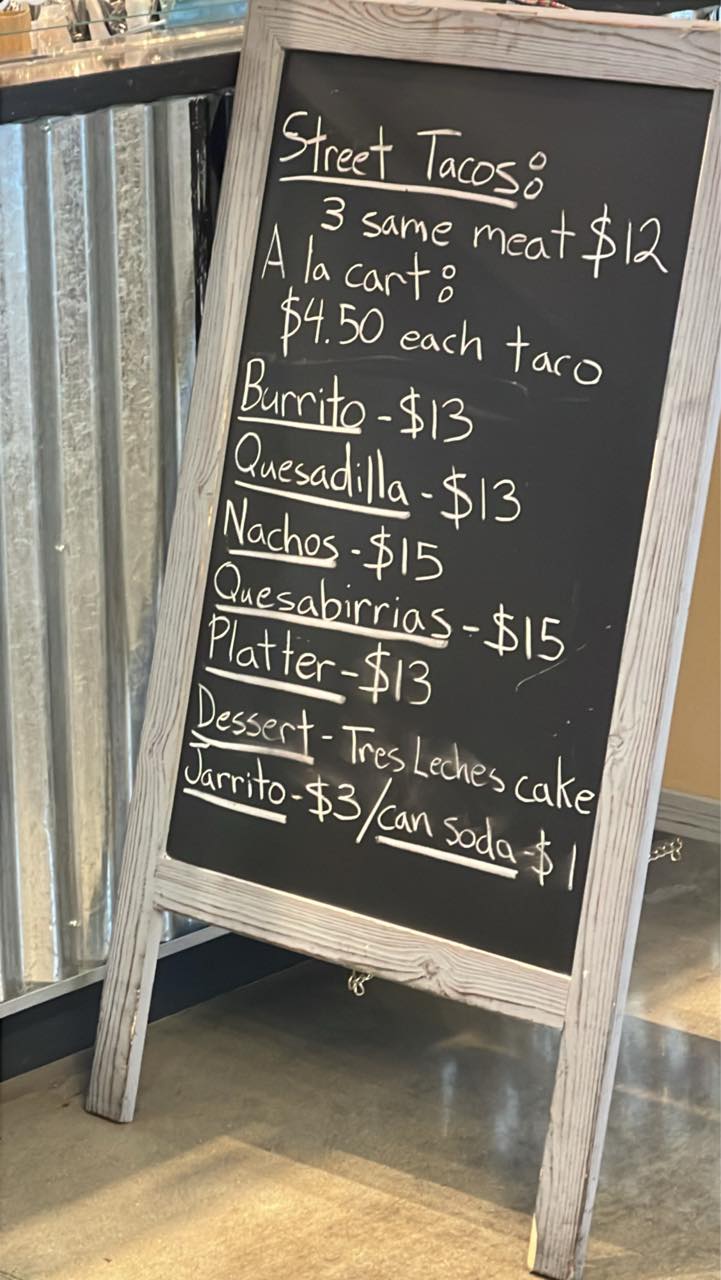 Street Tacos:
3 same meat $12
A la cart:
$4.50 each taco
Burrito - $13
Quesadilla - $13
Nachos - $15
Quesabirrias - $15
Platter - $13
Dessert - Tres Leches cake
Jarrito - $3 / can soda - $1